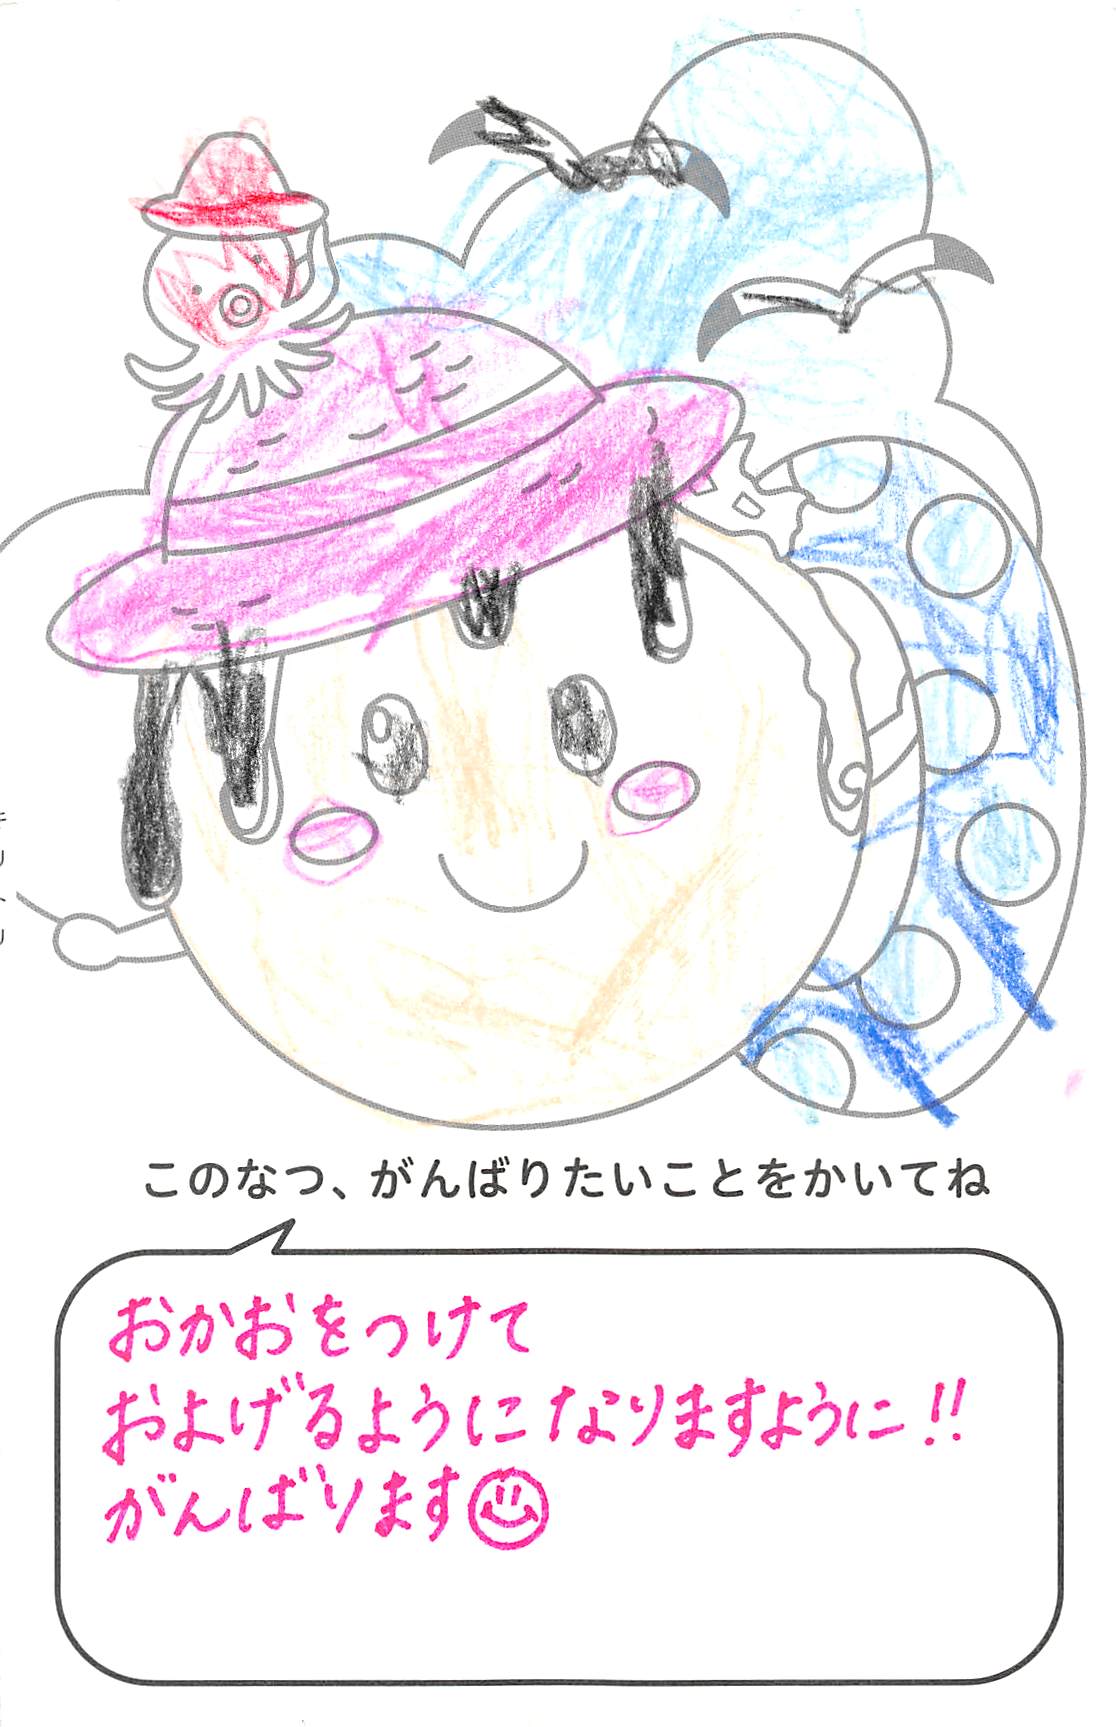 キリトリ
このなつ、がんばりたいことをかいてね
おかおをつけて
およげるようになりますように!!
がんばります